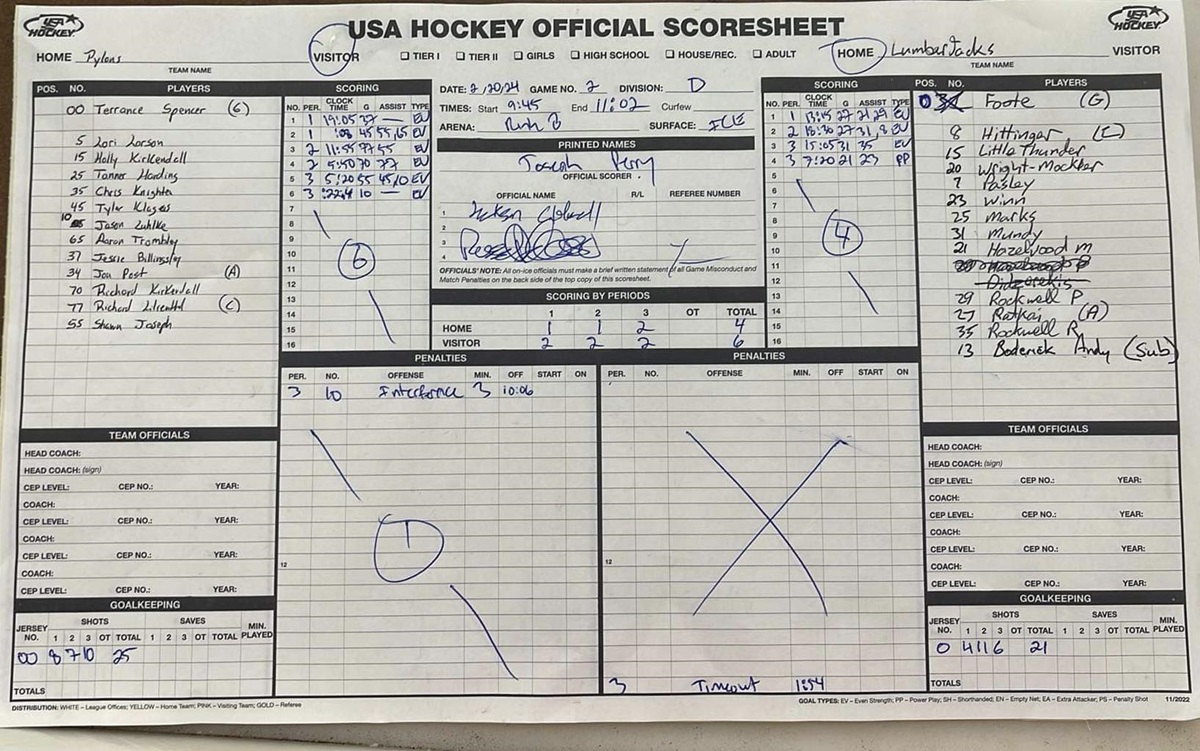 USA HOCKEY
USA HOCKEY OFFICIAL SCORESHEET
USA HOCKEY
HOME Pylons VISITOR ☐ TIER I ☐ TIER II ☐ GIRLS ☐ HIGH SCHOOL ☐ HOUSE/REC. ☐ ADULT HOME LumberJacks VISITOR
TEAM NAME
TEAM NAME
POS. NO. PLAYERS
00 Terrance Spencer (G)
5 Lori Larson
15 Holly Kirkendall
25 Tanner Harding
35 Chris Knighten
45 Tyler Klages
10 Jason Luhlke
65 Aaron Trombley
37 Jessie Billingsley
34 Jon Post (A)
70 Richard Kirkendall
77 Richard Lilienthal (C)
55 Shawn Joseph
SCORING
NO. PER. CLOCK TIME G ASSIST TYPE
1 1 19:05 37 — EV
2 1 :08 45 55,65 EV
3 2 11:55 77 55 EV
4 2 5:50 70 77 EV
5 3 5:20 55 45,10 EV
6 3 :22.4 10 — EV
7
8
9
10
11
12
13
14
15
16
6
DATE: 2/20/24 GAME NO. 2 DIVISION: D
TIMES: Start 9:45 End 11:02 Curfew
ARENA: Rink B SURFACE: ICE
PRINTED NAMES
Joseph Perry
OFFICIAL SCORER
OFFICIAL NAME R/L REFEREE NUMBER
1
2
3
4
OFFICIALS' NOTE: All on-ice officials must make a brief written statement of all Game Misconduct and
Match Penalties on the back side of the top copy of this scoresheet.
SCORING BY PERIODS
1 2 3 OT TOTAL
HOME 1 1 2 4
VISITOR 2 2 2 6
SCORING
NO. PER. CLOCK TIME G ASSIST TYPE
1 1 13:15 27 21 29 EV
2 2 18:30 27 31,8 EV
3 3 15:05 31 35 EV
4 3 7:20 21 23 PP
5
6
7
8
9
10
11
12
13
14
15
16
4
POS. NO. PLAYERS
0 Foote (G)
8 Hittinger (C)
15 Little Thunder
20 Wright-Mockler
7 Pasley
23 Winn
25 Marks
31 Mundy
21 Hazelwood M
Didzerekis
29 Rockwell P
27 Ratkai (A)
35 Rockwell R
13 Boderick Andy (Sub)
PENALTIES
PER. NO. OFFENSE MIN. OFF START ON
3 10 Interference 3 10:06
12
1
PENALTIES
PER. NO. OFFENSE MIN. OFF START ON
12
3 Timeout 1:54
TEAM OFFICIALS
HEAD COACH:
HEAD COACH: (sign)
CEP LEVEL: CEP NO.: YEAR:
COACH:
CEP LEVEL: CEP NO.: YEAR:
COACH:
CEP LEVEL: CEP NO.: YEAR:
COACH:
CEP LEVEL: CEP NO.: YEAR:
GOALKEEPING
SHOTS SAVES
JERSEY NO. 1 2 3 OT TOTAL 1 2 3 OT TOTAL MIN. PLAYED
00 8 7 10 25
TOTALS
TEAM OFFICIALS
HEAD COACH:
HEAD COACH: (sign)
CEP LEVEL: CEP NO.: YEAR:
COACH:
CEP LEVEL: CEP NO.: YEAR:
COACH:
CEP LEVEL: CEP NO.: YEAR:
COACH:
CEP LEVEL: CEP NO.: YEAR:
GOALKEEPING
SHOTS SAVES
JERSEY NO. 1 2 3 OT TOTAL 1 2 3 OT TOTAL MIN. PLAYED
0 4 11 6 21
TOTALS
DISTRIBUTION: WHITE – League Offices; YELLOW – Home Team; PINK – Visiting Team; GOLD – Referee
GOAL TYPES: EV – Even Strength; PP – Power Play; SH – Shorthanded; EN – Empty Net; EA – Extra Attacker; PS – Penalty Shot 11/2022